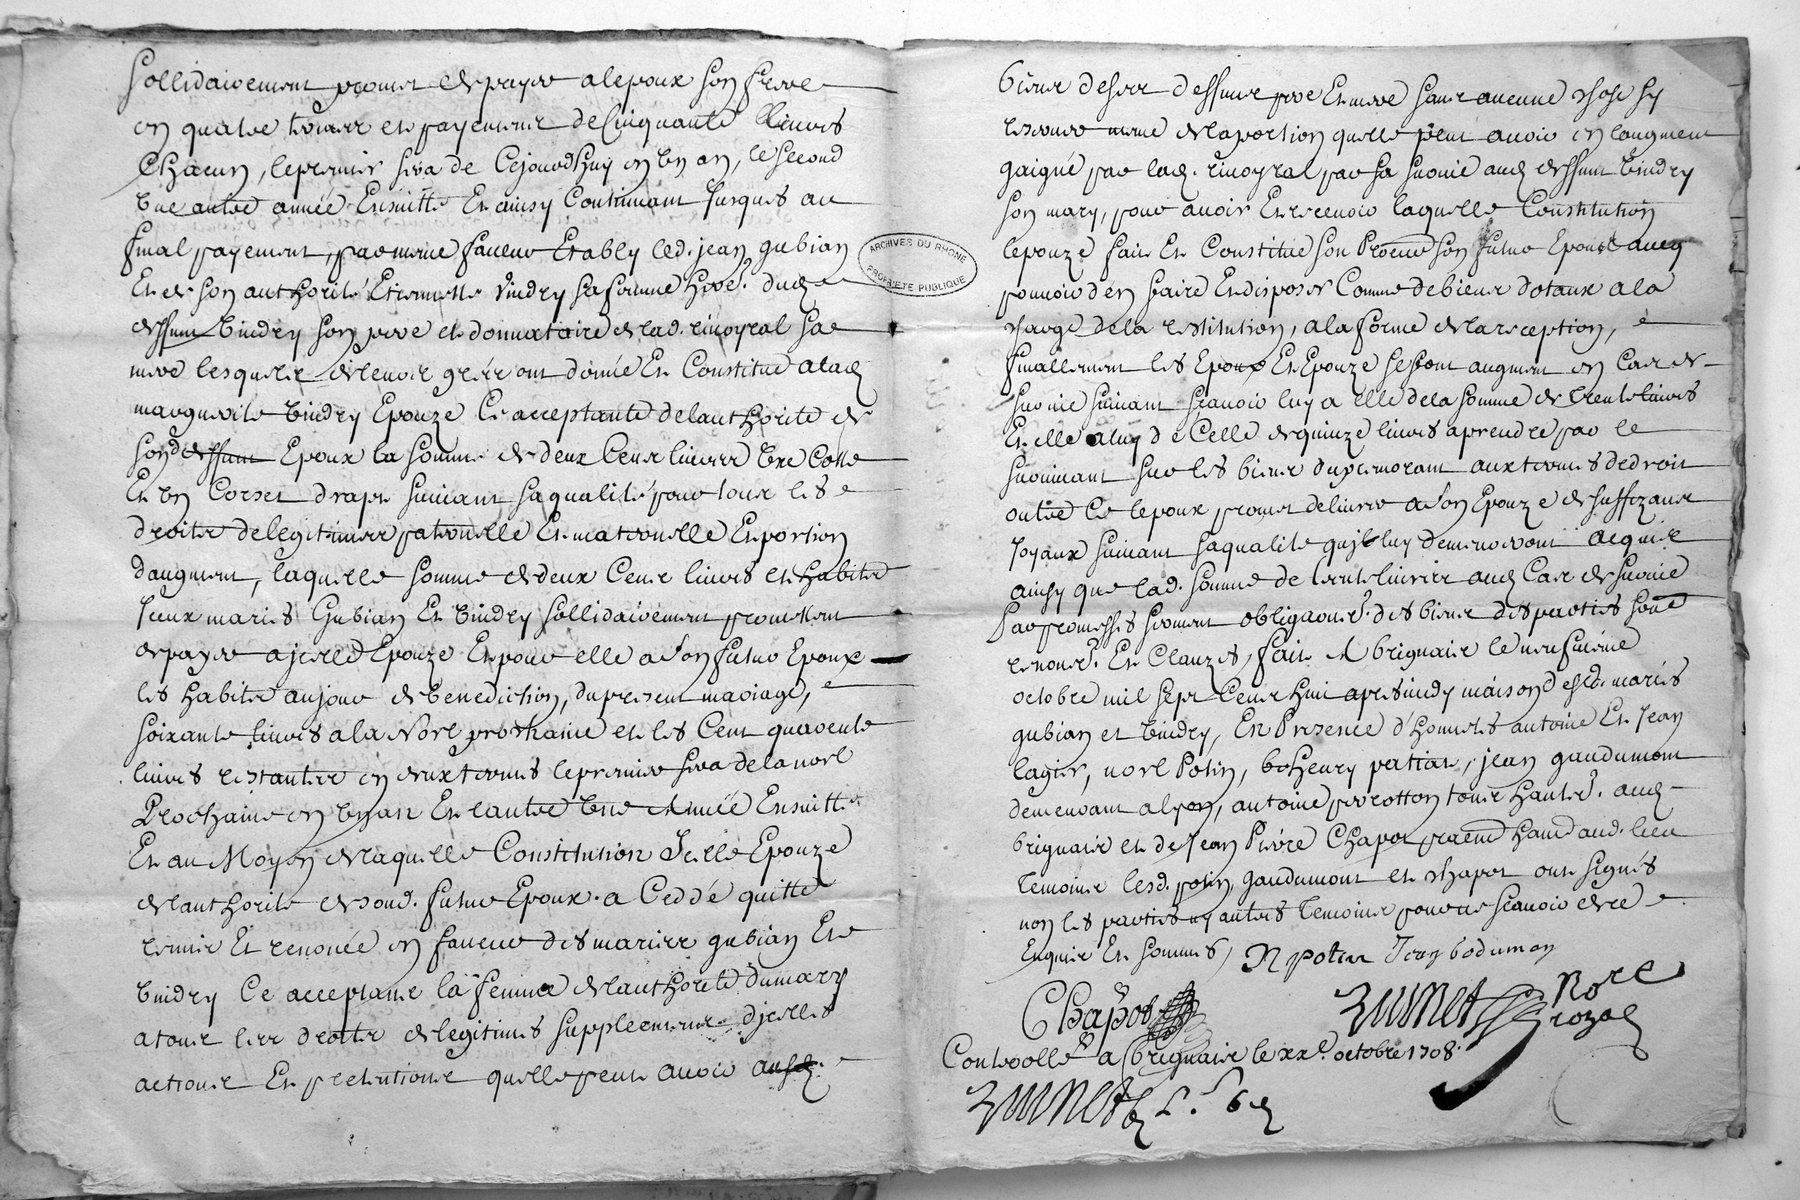 sollidairement promet de payer a lepoux son frere
en quatre termes et payements de Cinquante Livres
Chacun, le premier sera de Cejourdhuy en un an, le second
une autre année Ensuitte Et ainsy Continuant Jusques au
final payement, par meme faveur Etably led. jean gubian
Et de son authorité Etiennette vindry sa femme her. dud
deffunt vindry son pere et donnataire de lad. rinoyral sa
mere lesquels de leurs grés ont donné Et Constitué a lad
marguerite vindry Epouze Ce acceptante de lauthorité de
sond Epoux la somme de deux Cens livres une Cotte
Et un Corset drap suivant sa qualité pour tous les
droits de legitimes paternelle Et maternelle Et portion
daugment, laquelle somme de deux Cens livres et habits
Iceux mariés Gubian Et vindry sollidairement promettent
de payer a jcelle Epouze Et pour elle a son futur Epoux
les habits au jour de benediction, du present mariage,
soixante livres a la Noel prochaine et les Cent quarente
livres restantes en deux termes le premier sera de la noel
Prochaine en un an Et lautre une Année Ensuitte
Et au Moyen de laquelle Constitution Icelle Epouze
de lauthorité de sond. futur Epoux a Ceddé quitté
remis Et renoncé en faveur des mariés gubian Et
vindry Ce acceptans la femme de lauthorité du mary
a tous les droits de legitimes supplements djcelles
actions Et pretentions quelle peut avoir
biens desd deffunts pere Et mere sans aucune chose sy
reserver meme de la portion quelle peut avoir en laugment
gaigné par lad. rinoyral par sa survie aud deffunt vindry
son mary, pour avoir Et recevoir laquelle Constitution
lepouze fait Et Constitue son Procur son futur Epoux avec
pouvoir den faire Et disposer Comme de biens dotaux a la
charge de la restitution, a la forme de la reception,
finallement les Epoux Et Epouze se font augment en Cas de
survie suivant scavoir luy a elle de la somme de trente livres
Et elle a luy de Celle de quinze livres a prendre par le
survivant sur les biens du premorant aux termes de droit
outre Ce lepoux promet delivrer a son Epouze de suffizans
Joyaux suivant sa qualité quj luy demeureront acquis
ainsy que lad. somme de trente livres aud Cas de survie
Par promesses serment obligations des biens des parties soum
renon. Et Clauzes, fait A brignais le neufvieme
octobre mil sept Cens huit apres midy maison desd. mariés
gubian et vindry, En Presence d'honnetes antoine Et Jean
lagier, noel Potin, bohenry patian, jean gaudumont
demeurant a lyon, antoine perrotton tous habit. aud
brignais et de Jean Pierre Chapot praticien habit aud. lieu
temoins lesd. potin, gaudumont et chapot ont signés
non les parties ny autres temoins pour ne scavoir de ce
Enquis Et sommés, N potin Jean bodumon
Chapot
Controllé a brignais le xxe. octobre 1708.